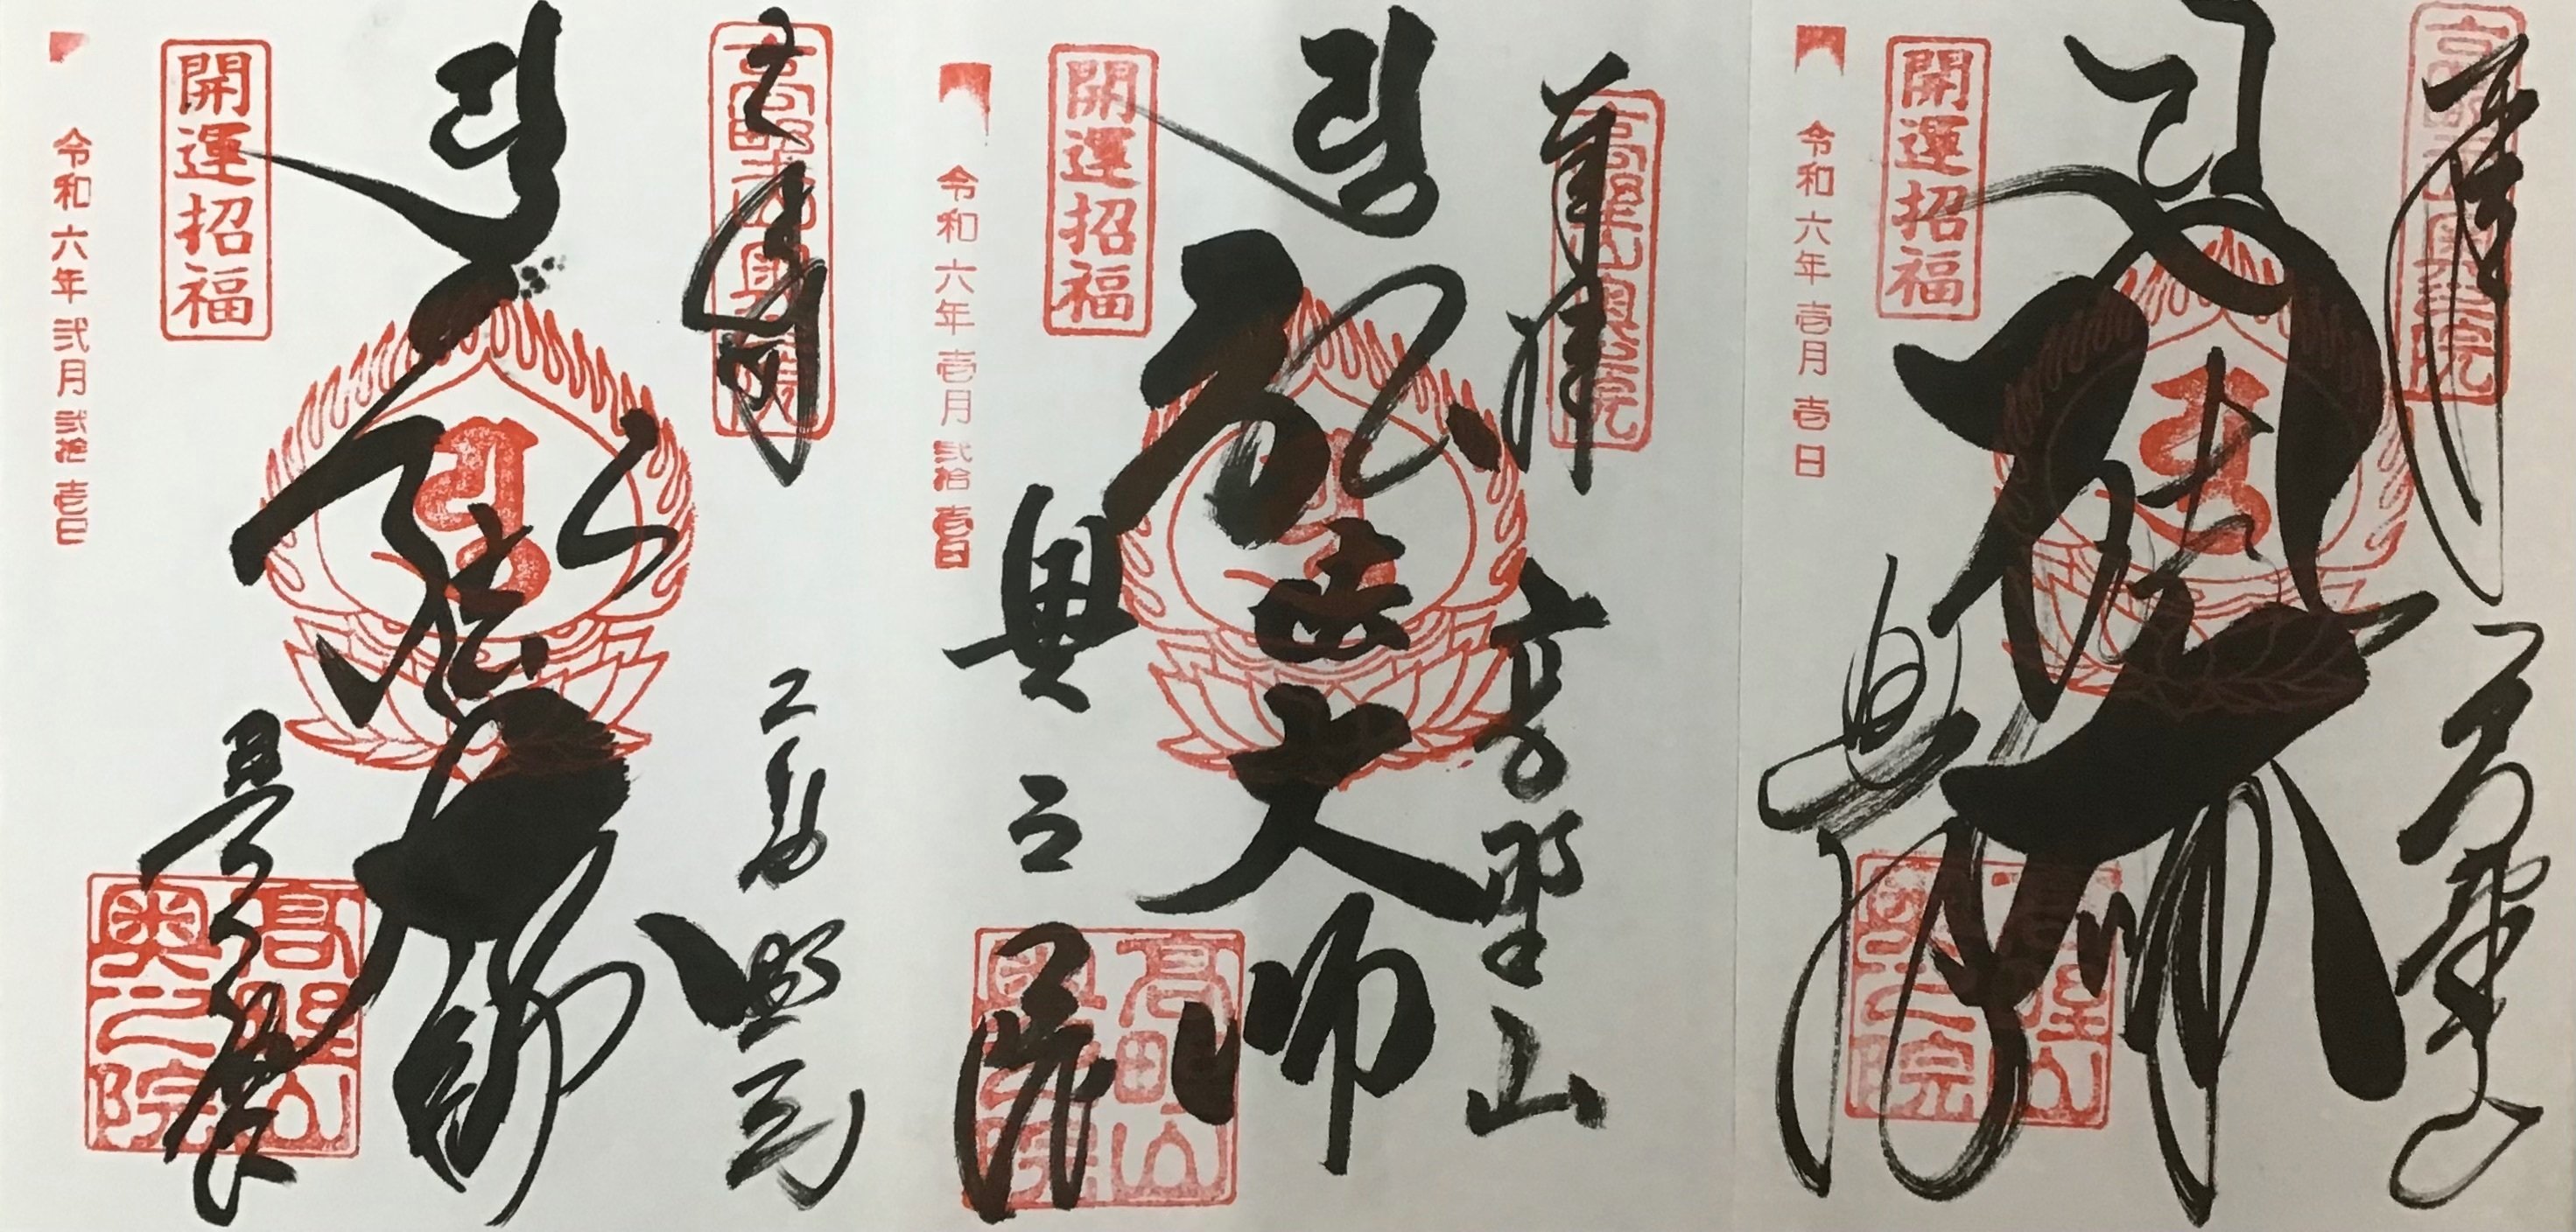 奉拝
高野山奥之院
高野山
弘法大師
開運招福
奥之院
高野山奥之院
令和六年壱月壱日
奉拝
高野山奥之院
高野山
弘法大師
開運招福
奥之院
高野山奥之院
令和六年壱月弐拾壱日
高野山奥之院
弘法大師
開運招福
高野山奥之院
令和六年弐月弐拾壱日